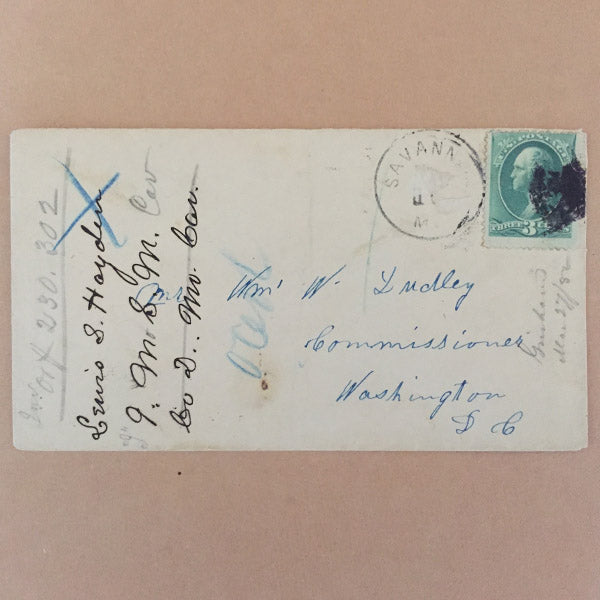 SAVANN
M
U.S. POSTAGE
THREE 3 CENTS
Mr. Wm W. Dudley
Commissioner
Washington
D C
Lewis S. Hayden
9. M. S. M. Cav
Co D.. Mo. Cav.
Inv. Orf 230.302
Mar 27/82